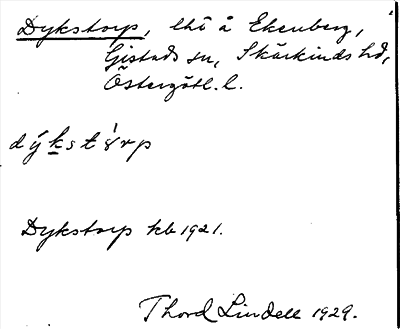 Dykstorp, lht å Ekenberg,
Gistads sn, Skärkinds hd,
Östergötl. l.
dýkstòrp
Dykstorp kb 1921.
Thord Lindell 1929.